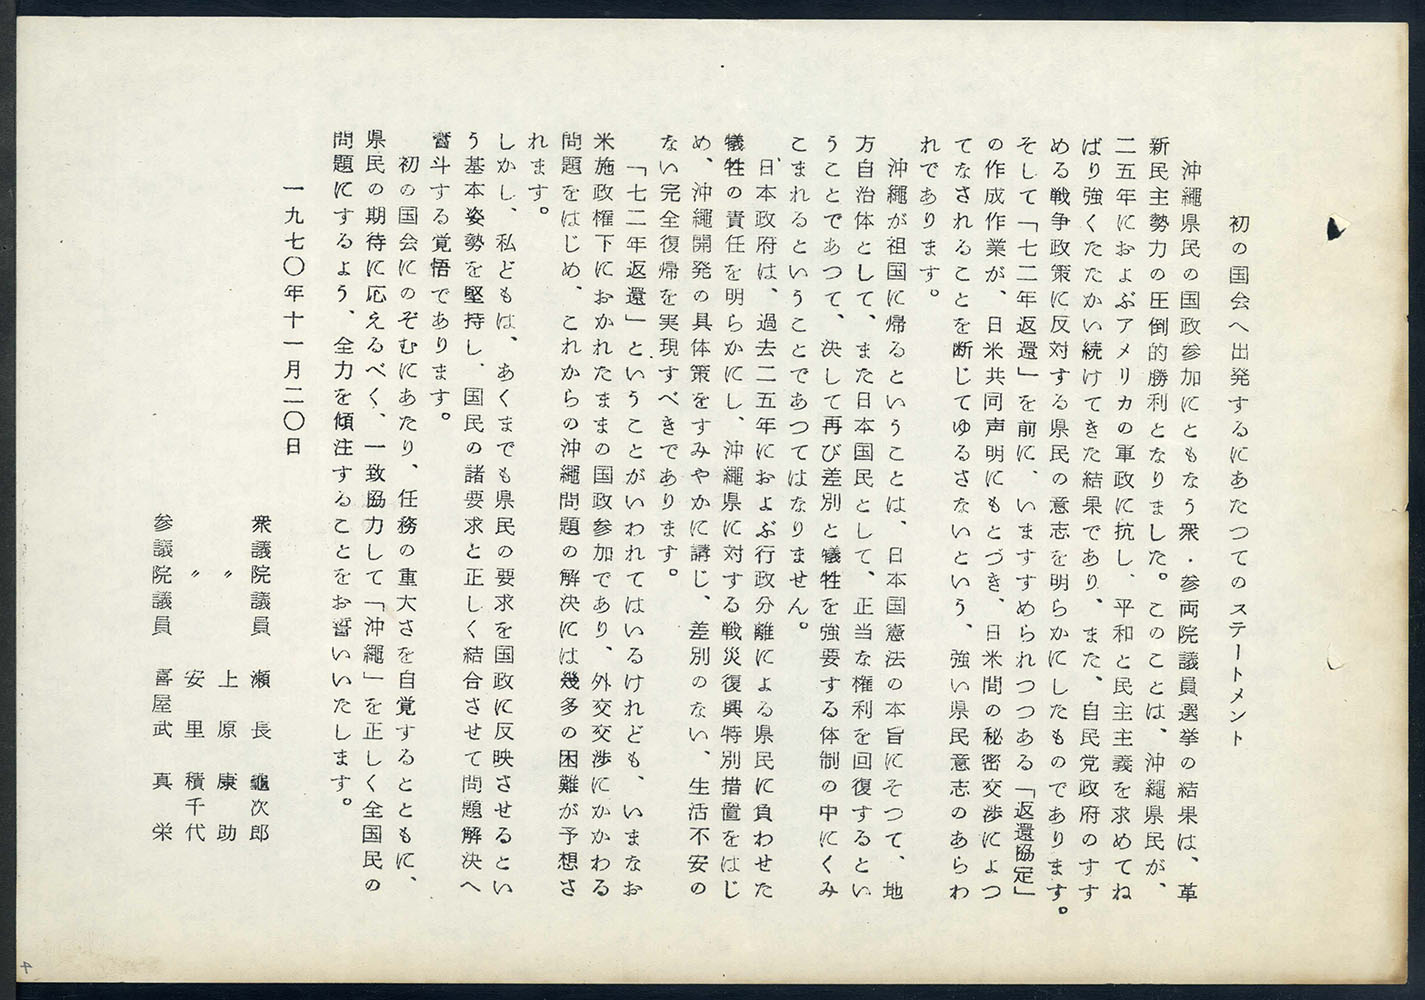 初の国会へ出発するにあたつてのステートメント
沖縄県民の国政参加にともなう衆・参両院議員選挙の結果は、革
新民主勢力の圧倒的勝利となりました。このことは、沖縄県民が、
二五年におよぶアメリカの軍政に抗し、平和と民主主義を求めてね
ばり強くたたかい続けてきた結果であり、また、自民党政府のすす
める戦争政策に反対する県民の意志を明らかにしたものであります。
そして「七二年返還」を前に、いますすめられつつある「返還協定」
の作成作業が、日米共同声明にもとづき、日米間の秘密交渉によつ
てなされることを断じてゆるさないという、強い県民意志のあらわ
れであります。
沖縄が祖国に帰るということは、日本国憲法の本旨にそつて、地
方自治体として、また日本国民として、正当な権利を回復するとい
うことであつて、決して再び差別と犠牲を強要する体制の中にくみ
こまれるということであつてはなりません。
日本政府は、過去二五年におよぶ行政分離による県民に負わせた
犠牲の責任を明らかにし、沖縄県に対する戦災復興特別措置をはじ
め、沖縄開発の具体策をすみやかに講じ、差別のない、生活不安の
ない完全復帰を実現すべきであります。
「七二年返還」ということがいわれてはいるけれども、いまなお
米施政権下におかれたままの国政参加であり、外交交渉にかかわる
問題をはじめ、これからの沖縄問題の解決には幾多の困難が予想さ
れます。
しかし、私どもは、あくまでも県民の要求を国政に反映させるとい
う基本姿勢を堅持し、国民の諸要求と正しく結合させて問題解決へ
奮斗する覚悟であります。
初の国会にのぞむにあたり、任務の重大さを自覚するとともに、
県民の期待に応えるべく、一致協力して「沖縄」を正しく全国民の
問題にするよう、全力を傾注することをお誓いいたします。
一九七〇年十一月二〇日
衆議院議員 瀬長亀次郎
〃 上原康助
〃 安里積千代
参議院議員 喜屋武真栄
4